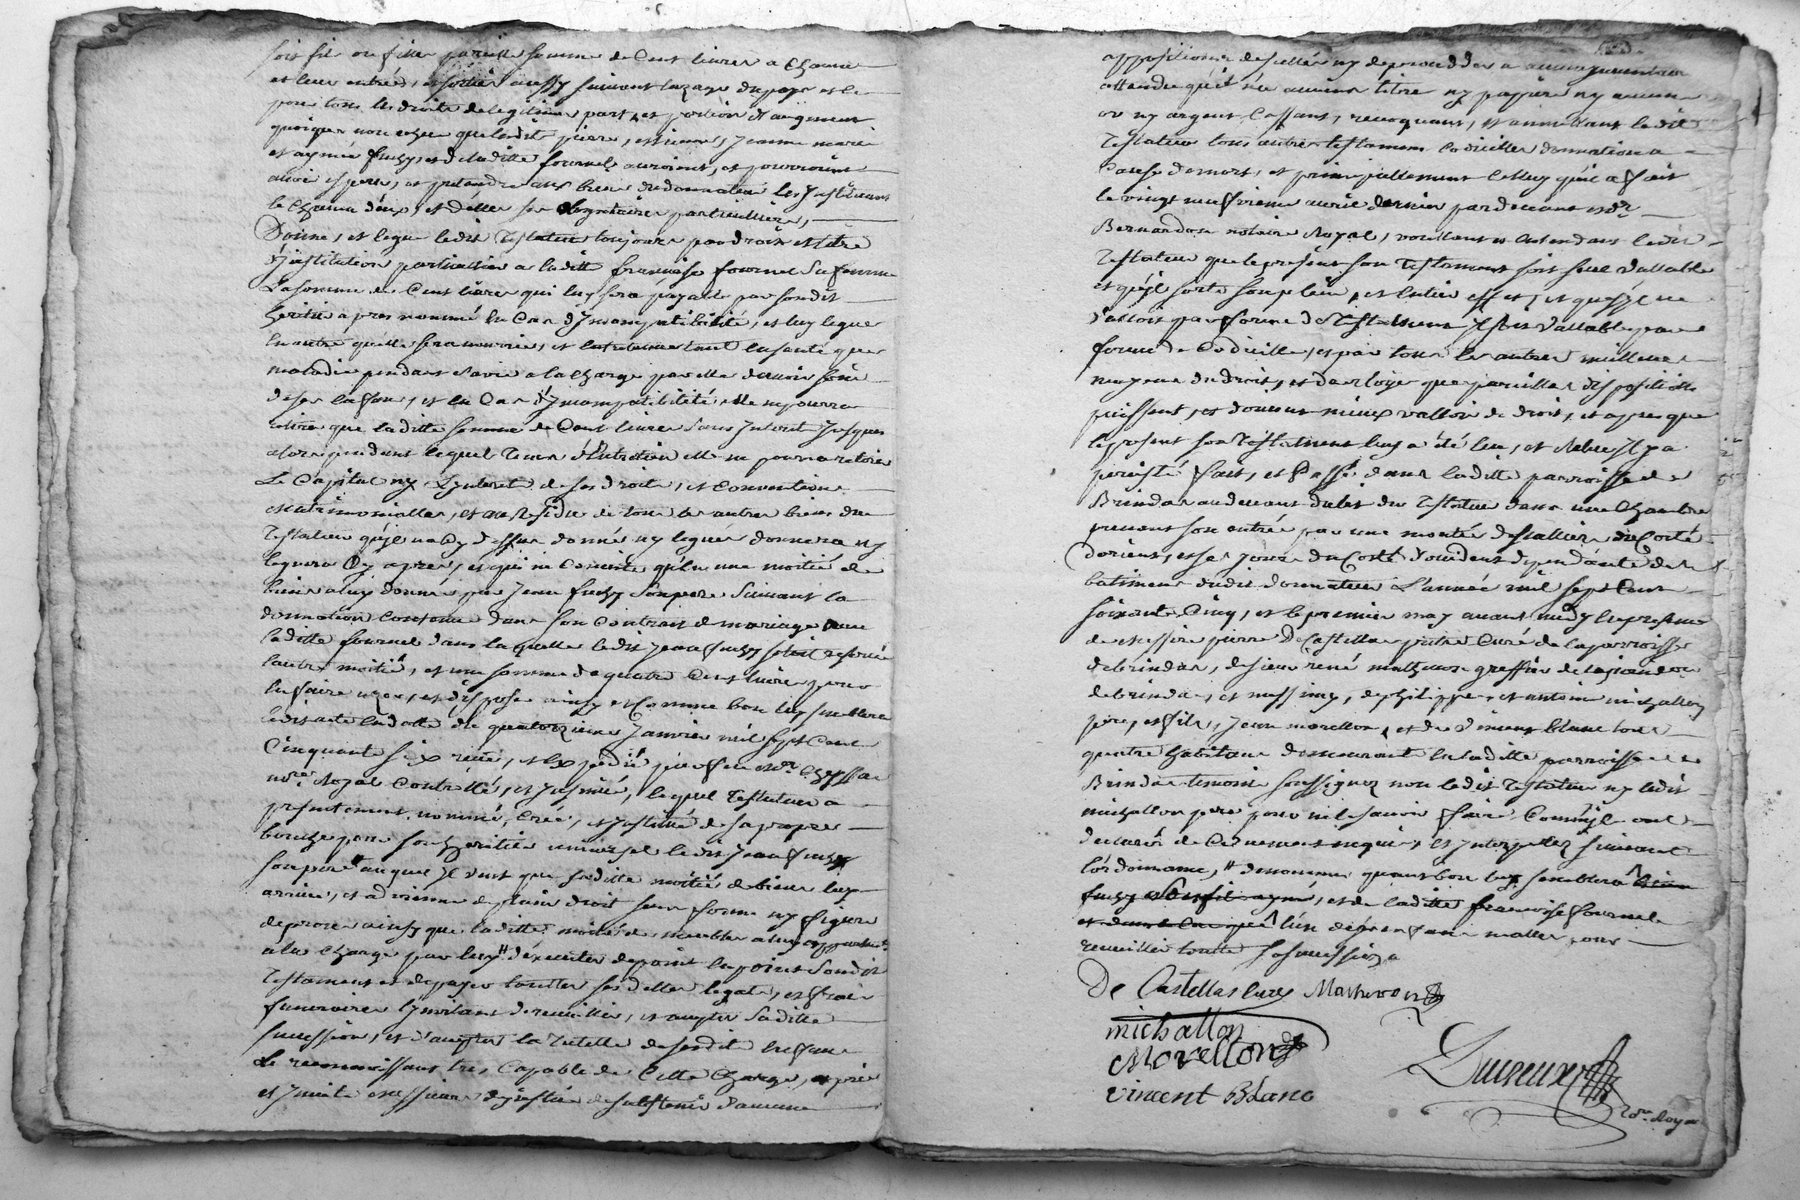 soit fils ou fille pareille somme de Cent livres a Chacun
et leur entrée, et sortie aussy suivant lusage du pays et ce
pour tous les droits de legitime, part, et portion d'augment
quoique non echu que ledit pierre, Jeanne marie
et aymée fuzy, et de laditte fournel auroient, et pourroient
avoir esperer, et pretendre aux biens du donnateur les Instituant
le Chacun d'eux, et d'elles ses légataires particulliers,
Donne, et legue ledit Testateur toujours par droit et titre
d'institution particulliere a laditte françoise fournel sa femme
La somme de Cent livres qui luy sera payable par sondit
heritier apres nommé En Cas d'Incompatibilité, et luy legue
En outre quelle sera nourrie, et Entretenue tant En santé que
maladie pendant sa vie a la charge par elle d'avoir soin
de ses Enfans, et En Cas d'Incompatibilité, elle ne pourra
retirer que laditte somme de Cent livres sans Interest Jusques
alors pendant lequel Tems d'Entretien elle ne pourra retirer
Le Capital ny L'Interet de ses droits, et Conventions
matrimonialles, et au Residu de tous les autres biens du
Testateur qu'il na Cy dessus donné ny legué donnera ny
leguera Cy apres, et qui ne Consiste qu'En une moitié de
biens a luy donnés par Jean fuzy Son pere Suivant la
donnation Contenue dans son Contrat de mariage avec
laditte fournel dans laquelle ledit Jean fuzy s'etoit reservé
l'autre moitié, et une somme de quatre Cent livres pour
En faire user, et disposer ainsy et Comme bon luy semblera
ledit acte En datte du quatorzieme Janvier mil sept Cent
Cinquante six reçu, et Expedié par feu me.
nre Royal Controllé, et Insinué, lequel Testateur a
presentement, nommé, Créé, et Institué de sa propre
bouche pour son heritier universel ledit Jean fuzy
son pere auquel Il veut que saditte moitié de biens luy
arrive, et advienne de plein droit sans forme ny figure
de procès ainsy que laditte moitié de meubles a luy appartenants
a la Charge par luy d'éxécuter de point En point Sondit
Testament et de payer touttes ses dettes legats, et frais
funeraires L'invitant de recueillir, et accepter saditte
succession, et d'accepter la Tutelle de sesdits Enfans
Le reconnoissant tres Capable de Cette Charge, et prie
et Invite messieurs de justice de s'abstenir d'aucune
apposition de scellés ny de proceder a aucun Inventaire
attendu qu'il n'a aucuns titres ny papiers ny aucun
or ny argent Cassant, revoquant, et annullant ledit
Testateur tous autres testamens Codicilles donnations a
Cause de mort, et principallement Celuy qu'il a fait
le vingt neufvieme avril dernier pardevant me.
Bernardon notaire Royal, voullant et Entendant ledit
Testateur que le present Son Testament soit seul vallable
et qu'il sorte Son plein, et Entier effet, et que s'il ne
valloit par forme de Testament Il soit vallable par
forme de Codicille, et par tous les autres meilleurs
moyens de droit, et dont loix que pareilles dispositions
puissent, et doivent mieux valloir de droit, et apres que
le present son Testament luy a été leu, et Releu Il y a
persisté fait, et Passé dans laditte parroisse de
Brindas au devant du lit du Testateur dans une Chambre
prenant son entrée par une montée d'Escallier du Costé
d'orient, et ses jours du Costé d'occident dependante des
batimens dudit donnateur L'année mil sept Cent
soixante Cinq, et le premier may avant midy En presence
de messire pierre De Castellas pretre Curé de la parroisse
de brindas, de sieur rené mathevon greffier de la jurisdiction
de brindas, et messimy, de philippe, et antoine michallon
pere, et fils, Jean morellon, et de Vincent blanc tous
quatre habitans demeurant En laditte parroisse de
Brindas temoins soussignez non ledit Testateur ny ledit
michallon pere pour ne le sçavoir faire Comm'ils ont
declaré de Ce duement enquis, et Interpellez suivant
l'ordonnance,
fuzy et son fils aymé, et de laditte francoise fournel
recueillir toutte sa succession
De Castellas Curé Mathevon
michallon
Morellon
vincent Blanc
nre Royal